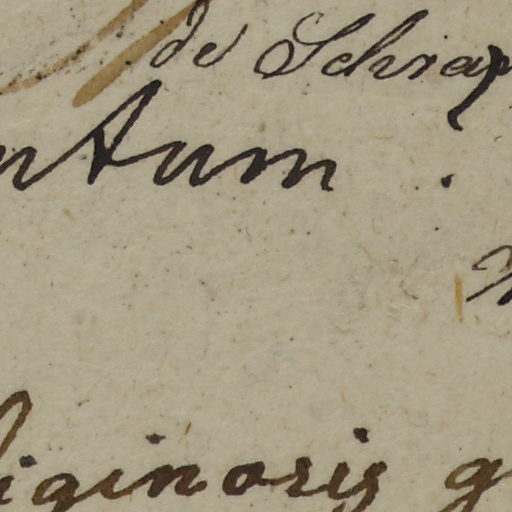 de Schrap
ntum ?
iginosis g